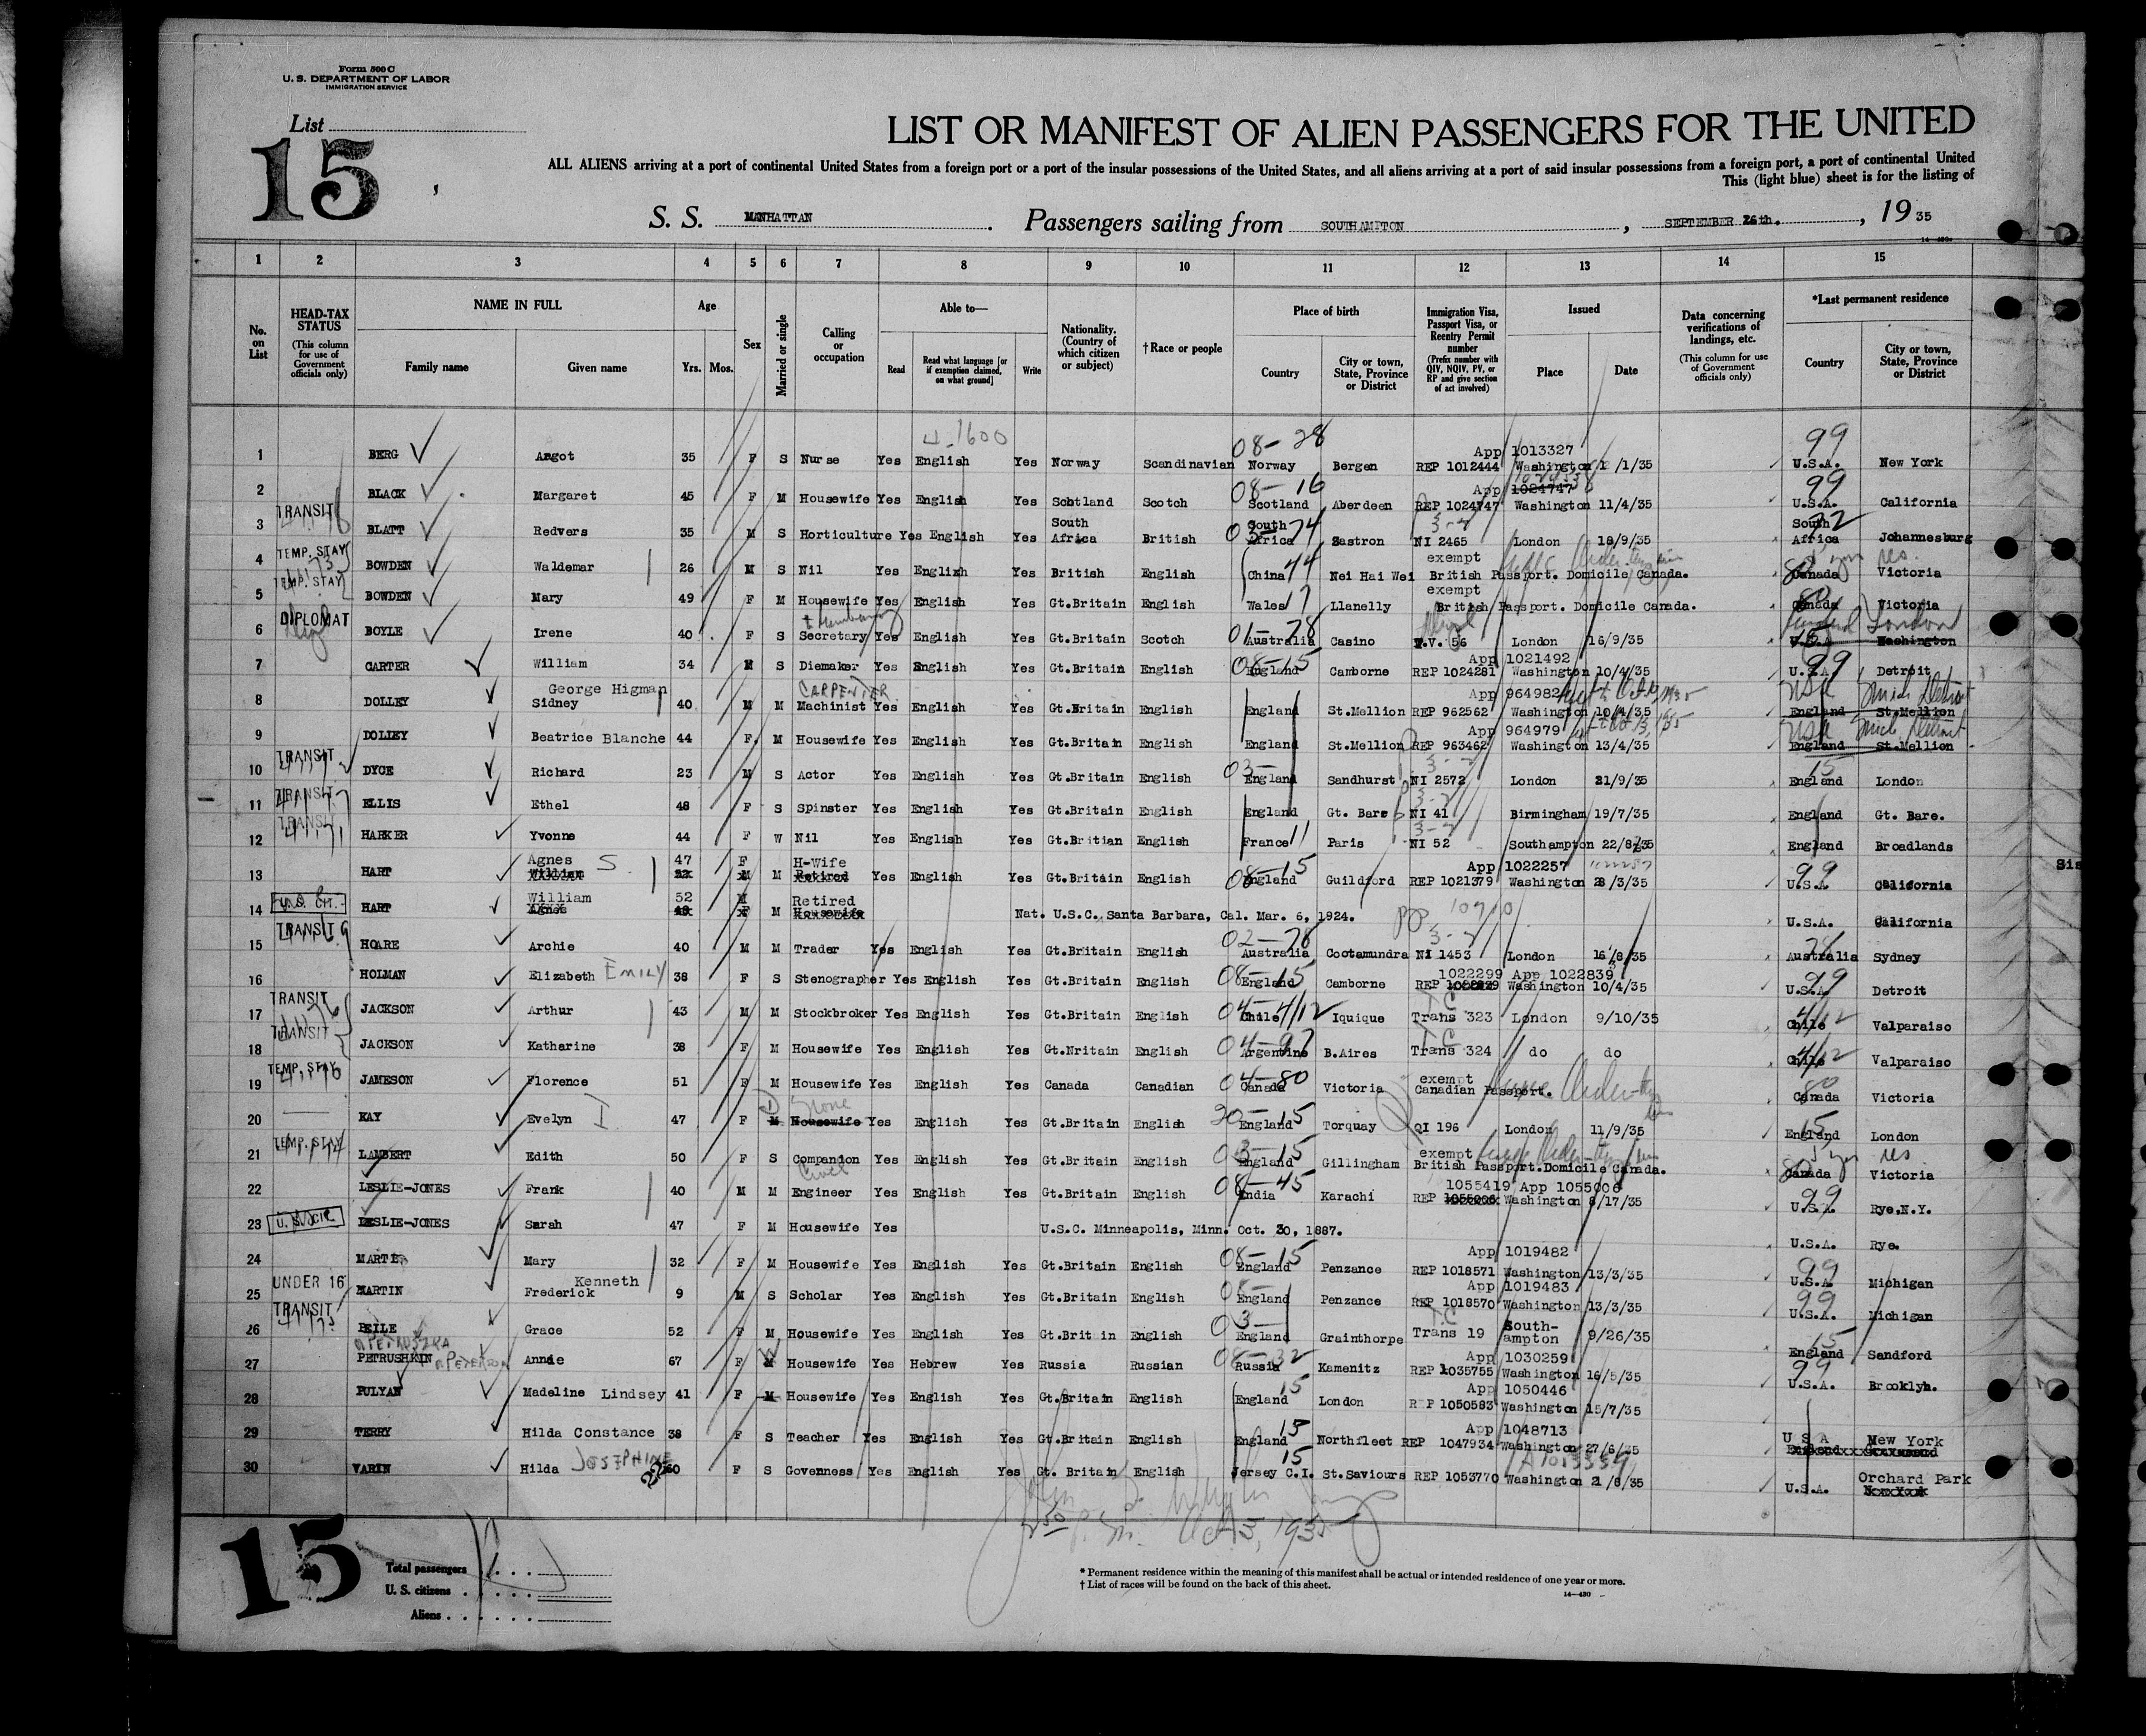 Form 500 C
U. S. DEPARTMENT OF LABOR
IMMIGRATION SERVICE
List
15
LIST OR MANIFEST OF ALIEN PASSENGERS FOR THE UNITED
ALL ALIENS arriving at a port of continental United States from a foreign port or a port of the insular possessions of the United States, and all aliens arriving at a port of said insular possessions from a foreign port, a port of continental United
This (light blue) sheet is for the listing of
S. S. MANHATTAN. Passengers sailing from SOUTHAMPTON, SEPTEMBER 26th., 1935
1 2 3 4 5 6 7 8 9 10 11 12 13 14 15
No. on List
HEAD-TAX STATUS (This column for use of Government officials only)
NAME IN FULL Family name Given name
Age Yrs. Mos.
Sex
Married or single
Calling or occupation
Able to— Read Read what language [or if exemption claimed, on what ground] Write
Nationality. (Country of which citizen or subject)
†Race or people
Place of birth Country City or town, State, Province or District
Immigration Visa, Passport Visa, or Reentry Permit number (Prefix number with QIV, NQIV, PV, or RP and give section of act involved)
Issued Place Date
Data concerning verifications of landings, etc. (This column for use of Government officials only)
*Last permanent residence Country City or town, State, Province or District
1 BERG Aagot 35 F S Nurse Yes English Yes Norway Scandinavian 08-28 Norway Bergen App 1013327 REP 1012444 Washington /1/35 99 U.S.A. New York
2 BLACK Margaret 45 F M Housewife Yes English Yes Scotland Scotch 08-16 Scotland Aberdeen App 1024747 REP 1024747 Washington 11/4/35 99 U.S.A. California
3 TRANSIT BLATT Redvers 35 M S Horticulture Yes English Yes South Africa British South Africa Zastron NI 2465 London 18/9/35 South Africa Johannesburg
4 TEMP. STAY BOWDEN Waldemar 26 M S Nil Yes English Yes British English China 44 Nei Hai Wei exempt British Passport. Domicile Canada. Canada Victoria
5 TEMP. STAY BOWDEN Mary 49 F M Housewife Yes English Yes Gt.Britain English Wales 17 Llanelly exempt British Passport. Domicile Canada. Canada Victoria
6 DIPLOMAT BOYLE Irene 40 F S Secretary Yes English Yes Gt.Britain Scotch 01-78 Australia Casino P.V. 56 London 16/9/35 England London U.S.A Washington
7 CARTER William 34 M S Diemaker Yes English Yes Gt.Britain English 08-15 England Camborne App 1021492 REP 1024281 Washington 10/4/35 99 U.S.A Detroit
8 DOLLEY George Higman Sidney 40 M M CARPENTER Machinist Yes English Yes Gt.Britain English England St.Mellion App 964982 REP 962562 Washington 10/4/35 USA Mich Detroit England St.Mellion
9 DOLLEY Beatrice Blanche 44 F M Housewife Yes English Yes Gt.Britain English England St.Mellion App 964979 REP 963462 Washington 13/4/35 USA Mich Detroit England St.Mellion
10 TRANSIT DYCE Richard 23 M S Actor Yes English Yes Gt.Britain English 03- England Sandhurst NI 2572 London 21/9/35 15 England London
11 TRANSIT ELLIS Ethel 48 F S Spinster Yes English Yes Gt.Britain English England Gt. Bare NI 41 Birmingham 19/7/35 England Gt. Bare.
12 TRANSIT HARKER Yvonne 44 F W Nil Yes English Yes Gt.Britian English France 11 Paris NI 52 Southampton 22/8/35 England Broadlands
13 HART Agnes S William 47 52 F M M H-Wife Retired Yes English Yes Gt.Britain English 08-15 England Guildford App 1022257 REP 1021379 Washington 28/3/35 99 U.S.A California
14 U.S. CIT. HART William Agnes 52 M F M Retired Housewife Nat. U.S.C. Santa Barbara, Cal. Mar. 6, 1924. U.S.A. California
15 TRANSIT HOARE Archie 40 M M Trader Yes English Yes Gt.Britain English 02-78 Australia Cootamundra NI 1453 London 16/8/35 78 Australia Sydney
16 HOLMAN Elizabeth EMILY 38 F S Stenographer Yes English Yes Gt.Britain English 08-15 England Camborne 1022299 App 1022839 REP Washington 10/4/35 99 U.S.A. Detroit
17 TRANSIT JACKSON Arthur 43 M M Stockbroker Yes English Yes Gt.Britain English 04-4/12 Chile Iquique T.C Trans 323 London 9/10/35 4/12 Chile Valparaiso
18 TRANSIT JACKSON Katharine 38 F M Housewife Yes English Yes Gt.Nritain English 04-97 Argentine B.Aires T.C Trans 324 do do 4/12 Chile Valparaiso
19 TEMP. STAY JAMESON Florence 51 F M Housewife Yes English Yes Canada Canadian 04-80 Canada Victoria exempt Canadian Passport. 80 Canada Victoria
20 KAY Evelyn I 47 F M D none Housewife Yes English Yes Gt.Britain English 20-15 England Torquay QI 196 London 11/9/35 15 England London
21 TEMP. STAY LAMBERT Edith 50 F S Companion Yes English Yes Gt.Britain English 03-15 England Gillingham exempt British Passport.Domicile Canada. Canada Victoria
22 LESLIE-JONES Frank 40 M M Civil Engineer Yes English Yes Gt.Britain English 08-45 India Karachi 1055419 App 1055006 REP 1055006 Washington 8/17/35 99 U.S.A. Rye,N.Y.
23 U.S. CIT. LESLIE-JONES Sarah 47 F M Housewife Yes U.S.C. Minneapolis, Minn. Oct. 30, 1887. U.S.A. Rye.
24 MARTIN Mary 32 F M Housewife Yes English Yes Gt.Britain English 08-15 England Penzance App 1019482 REP 1018571 Washington 13/3/35 99 U.S.A. Michigan
25 UNDER 16 MARTIN Kenneth Frederick 9 M S Scholar Yes English Yes Gt.Britain English 08- England Penzance App 1019483 REP 1018570 Washington 13/3/35 99 U.S.A. Michigan
26 TRANSIT PEILE Grace 52 F M Housewife Yes English Yes Gt.Britain English 03- England Grainthorpe T.C Trans 19 South-ampton 9/26/35 15 England Sandford
27 PETRUSHKIN Annie 67 F M W Housewife Yes Hebrew Yes Russia Russian 08-32 Russia Kamenitz App 1030259 REP 1035755 Washington 16/5/35 99 U.S.A. Brooklyn.
28 PULYAN Madeline Lindsey 41 F M Housewife Yes English Yes Gt.Britain English 15 England London App 1050446 REP 1050583 Washington 15/7/35
29 TERRY Hilda Constance 38 F S Teacher Yes English Yes Gt.Britain English 15 England Northfleet App 1048713 REP 1047934 Washington 27/6/35 U S A New York
30 VARIN Hilda JOSEPHINE F S Governess Yes English Yes Gt. Britain English 15 Jersey C.I. St.Saviours REP 1053770 Washington 21/8/35 U.S.A. Orchard Park New York
Oct 3, 1935
15
Total passengers
U. S. citizens
Aliens
* Permanent residence within the meaning of this manifest shall be actual or intended residence of one year or more.
† List of races will be found on the back of this sheet.
14—430